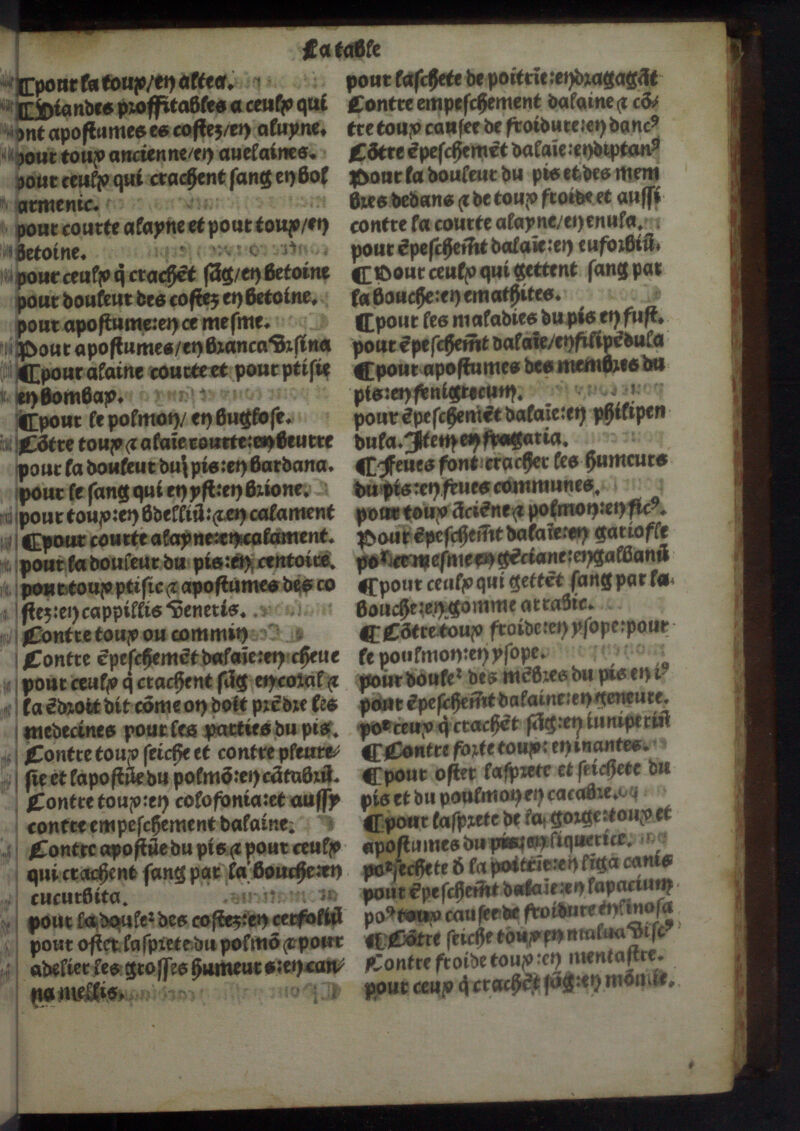 La table
¶pour la toux/en altea.
¶Viandes proffitables a ceulx qui
ont apostumes es costez/en aluyne.
pour toux ancienne/en auelaines.
pour ceulx qui crachent sang en bol
armenic.
pour courte alayne et pour toux/en
betoine.
pour ceulx q̃ crachẽt sãg/en betoine
pour douleur des costez en betoine.
pour apostume:en ce mesme.
Pour apostumes/en branca Vrsina
¶pour alaine courte et pour ptisie
en bombax.
¶pour le polmon/ en buglose.
Cõtre toux ⁊ alaĩe courte:en beurre
pour la douleur du pis:en bardana.
pour le sang qui en yst:en brione.
pour toux:en bdelliũ:⁊ en calament
¶pour courte alayne:en calament.
pour la douleur du pis:en centoire.
pour toux ptisic ⁊ apostumes des co
stez:en cappillis Veneris.
Contre toux ou commin
Contre ẽpeschemẽt dalaĩe:en cheue
pour ceulx q̃ crachent sãg en coral ⁊
la ẽdroit dit cõme on doit prẽdre les
medecines pour les parties du pis.
Contre toux seiche et contre pleure/
sie et lapostũe du polmõ:en cãtabrũ.
Contre toux:en colofonia:et aussy
contre empeschement dalaine.
Contre apostũe du pis ⁊ pour ceulx
qui crachent sang par la bouche:en
cucurbita.
pour la doule² des costez:en cerfoliũ
pour oster lasprete du polmõ ⁊ pour
adelier les grosses humeurs:en can/
na mellis.
pour laschete de poitrie:en dragagãt
Contre empeschement dalaine ⁊ cõ/
tre toux causee de froidure:en danc⁹
Cõtre ẽpeschemẽt dalaie:en diptan⁹
Pour la douleur du pis et des mem
bres dedans ⁊ de toux froide et aussi
contre la courte alayne/en enula.
pour ẽpeschem̃t dalaĩe:en euforbiũ.
¶Pour ceulx qui gettent sang par
la bouche:en emathites.
¶pour les maladies du pis en fust.
pour ẽpeschem̃t dalaĩe/en filipẽdula
¶pour apostumes des membres du
pis:en fenigrecum.
pour ẽpeschemẽt dalaĩe:en philipen
dula. Item en fragaria.
¶Feues font cracher les humeurs
du pis:en feues communes.
pour toux ãciẽne ⁊ polmon:en fic⁹.
Pour ẽpeschem̃t dalaĩe:en gariofle
po² ce mesme en gẽciane:en galbanũ
¶pour ceulx qui gettẽt sang par la
bouche:en gomme arrabic.
¶Cõtre toux froide:en ysope:pour
le poulmon:en ysope.
pour doule² des mẽbres du pis en i⁹
pour ẽpeschem̃t dalaine:en geneure.
po² ceux q̃ crachẽt sãg:en iuniperiũ
¶Contre forte toux: en inantes.
¶pour oster lasprete et seichete du
pis et du poulmon en cacabre.
¶pour lasprete de la gorge:toux et
apostumes du pis:en liquerice.
po² sechete d̃ la poitrie:en liga canis
pour ẽpeschem̃t dalaie:en lapacium
po² toux causee de froidure en linosa
¶Cõtre seiche toux en malua Vis⁹
Contre froide toux:en mentastre.
pour ceux q̃ crachẽt sãg:en mõmie.